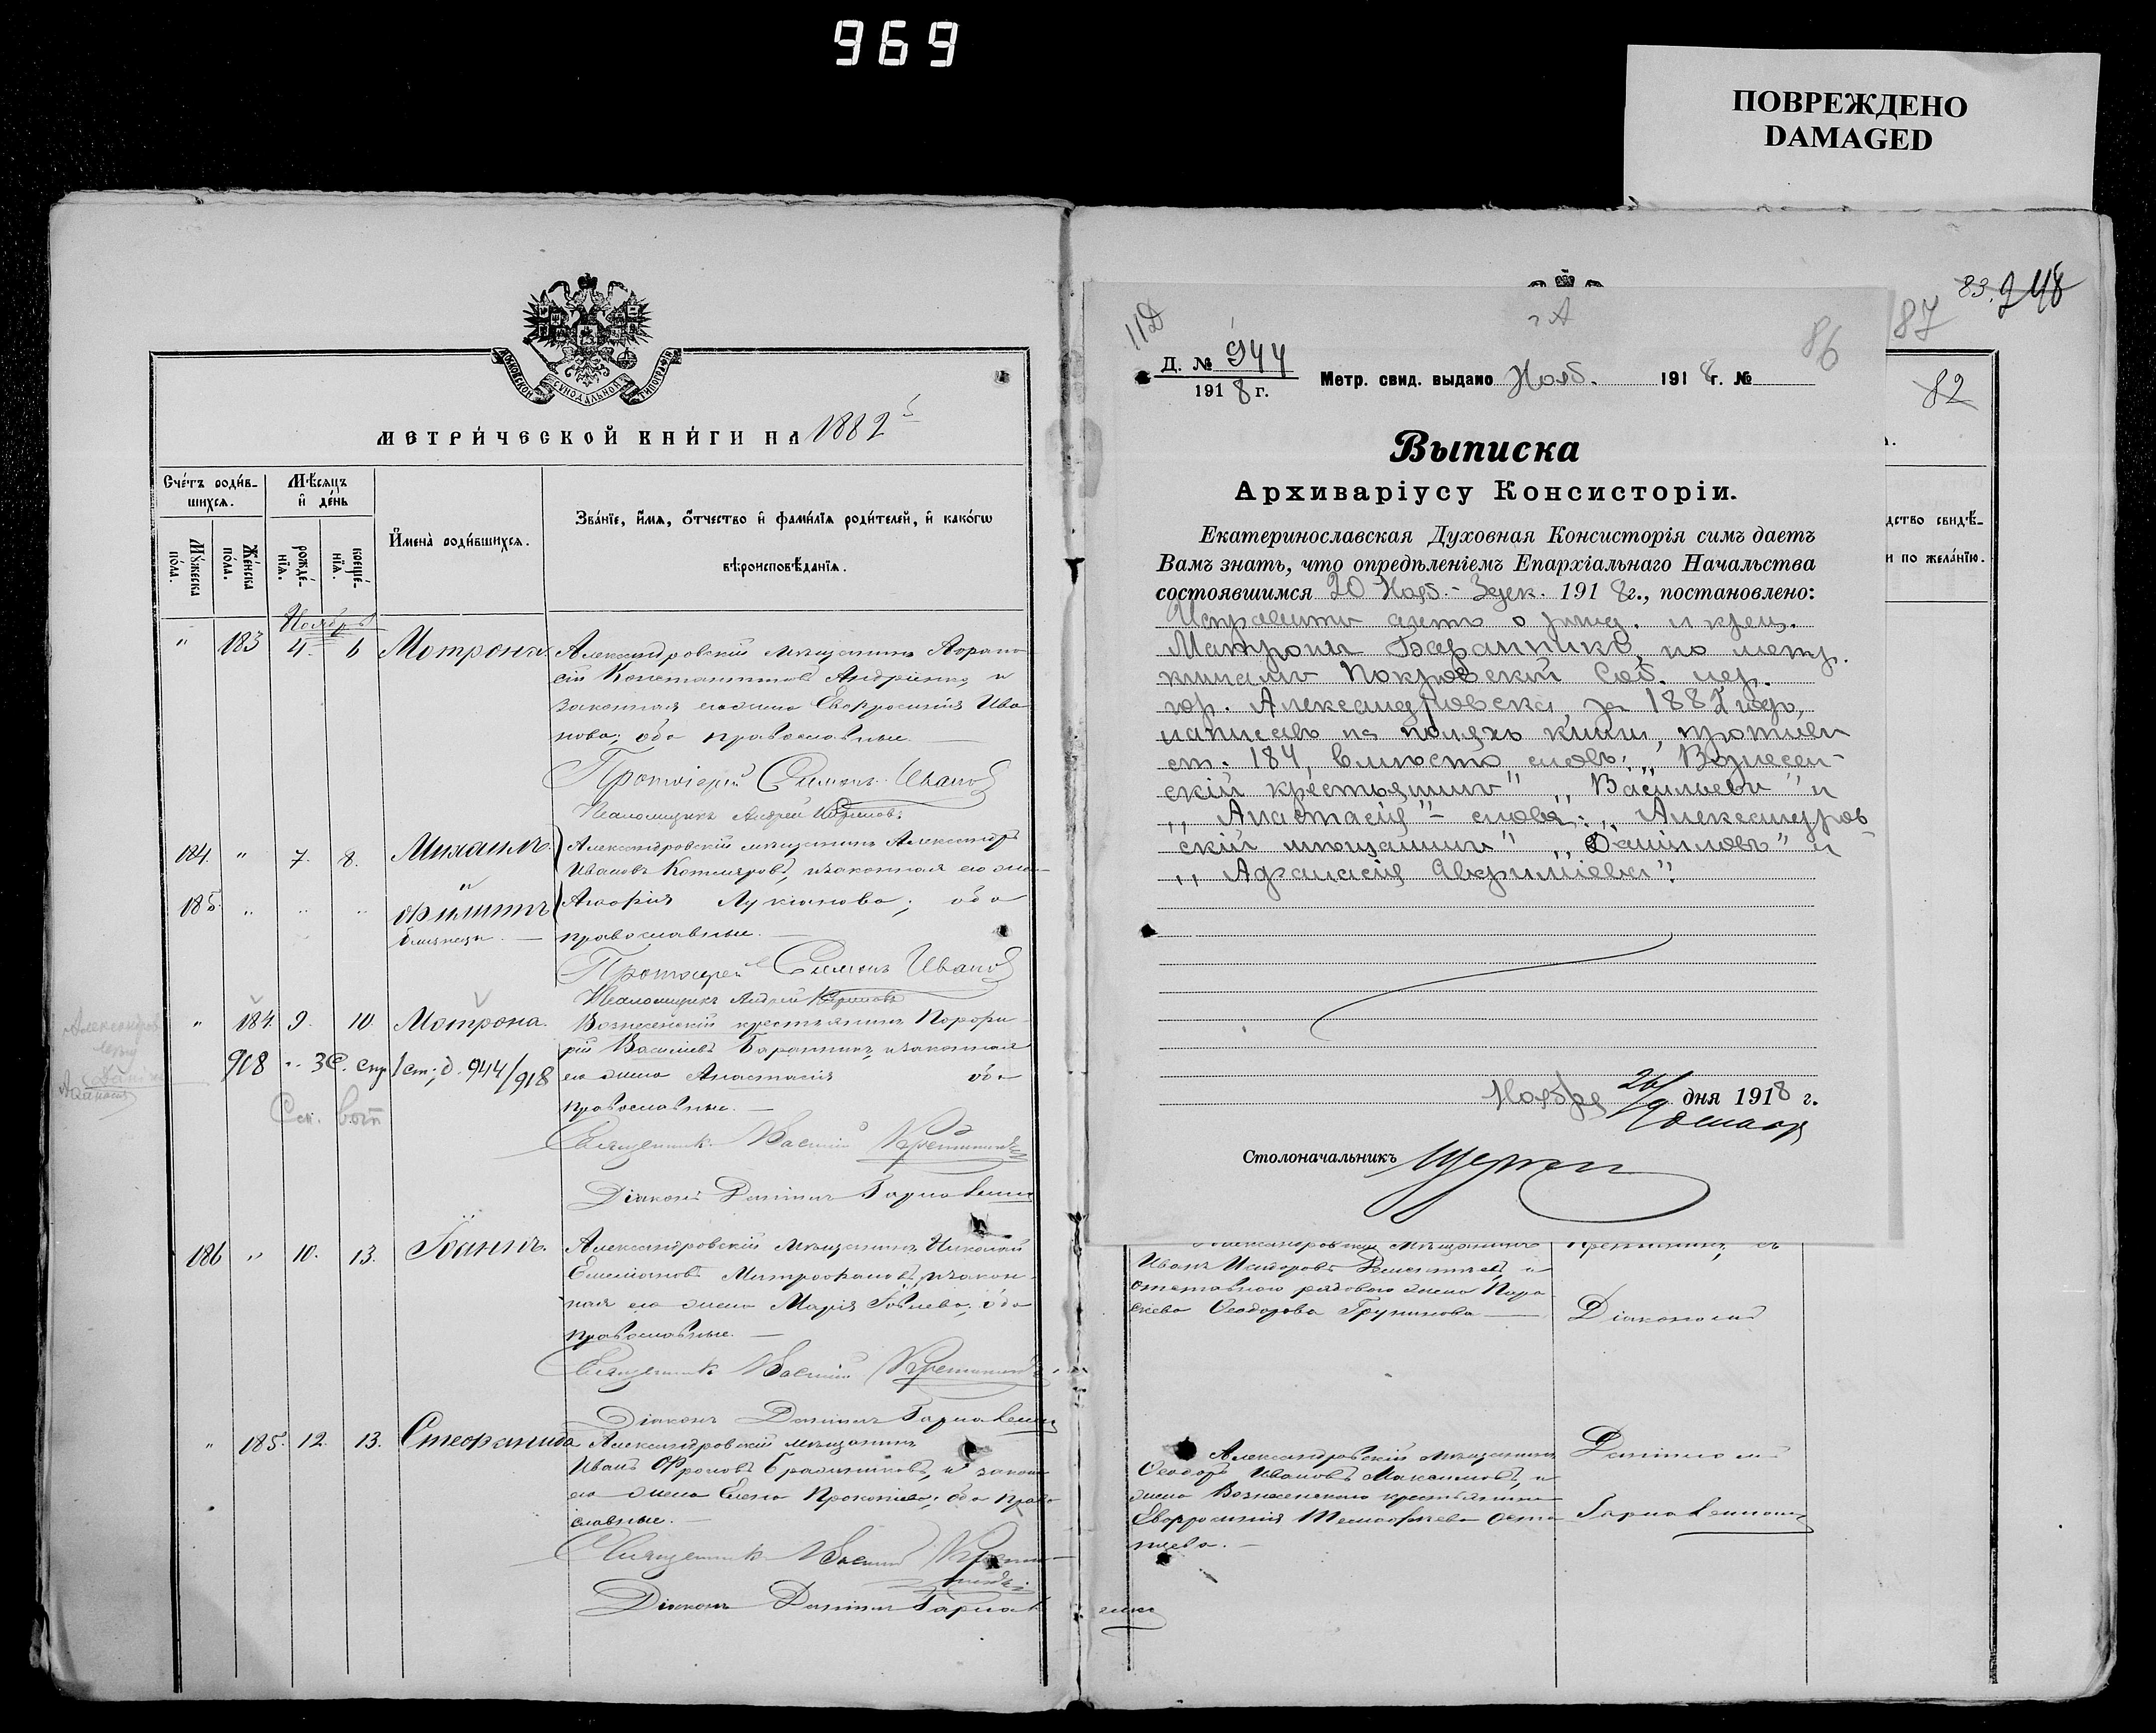 969
ПОВРЕЖДЕНО
DAMAGED
МОСКОВСКОЙ СѴНОДАЛЬНОЙ ТИПОГРАФІИ
МЕТРИ́ЧЕСКОЙ КНИ́ГИ НА 1882
Сче́тъ роди́в-
шихсѧ.
Мѣ́сяцъ
и҆ де́нь
Мꙋ́жеска
по́ла.
Же́нска
по́ла.
рожде́-
нїѧ.
креще́-
нїѧ.
И҆мена̀ роди́вшихсѧ.
Зва́нїе, и҆́мѧ, ѻ҆́тчество и҆ фами́лїѧ роди́телей, и҆ како́гѡ
вѣроисповѣ́данїѧ.
Ноябрь
" 183 4. 6 Мотрона
Александровскій мѣщанинъ Аѳана-
сій Константиновъ Андріенко, и
законная его жена Евфросинія Ива
нова; оба православные.
Протоіерей Симеонъ Ивановъ
Псаломщикъ Андрей
184. " 7. 8. Михаилъ
Александровскій мѣщанинъ Александръ
Ивановъ Котляровъ, и законная его же-
и
185. " " " Филиппъ
близнецы.
на Лукіанова; оба
православные.
Протоіерей Симеонъ Ивановъ
Псаломщикъ Андрей
" 184. 9. 10. Мотрона.
Вознесенскій крестьянинъ Порфи-
рій Васильевъ Баранникъ, и законная
его жена Анастасія оба
православные.
908 ст. д. 944/918
Священникъ Василій
Діаконъ Даніилъ
186 " 10. 13. Іоаннъ.
Александровскій мѣщанинъ Николай
Емеліановъ Митрофановъ, и закон-
ная его жена Марія Іовлева; оба
православные.
Священникъ Василій
Діаконъ Даніилъ
" 185. 12. 13. Стефанида
Александровскій мѣщанинъ
Иванъ Фроловъ Бражниковъ, и закон
его жена Елена Прокопіева; оба право
славные.
Священникъ Василій
Діаконъ Даніилъ
83. 248
87
82
86
11
Д. № 944
1918 г.
Метр. свид. выдано Нояб. 1918 г. №
Выписка
Архиваріусу Консисторіи.
Екатеринославская Духовная Консисторія симъ даетъ
Вамъ знать, что опредѣленіемъ Епархіальнаго Начальства
состоявшимся 20 Нояб.- 3 дек. 1918 г., постановлено:
Исправить актъ о рожд. и крещ.
Матроны Баранникъ, по метр.
книгамъ Покровской Соб. цер.
гор. Александровска за 1882 годъ,
написавъ на поляхъ книги, противъ
ст. 184, вмѣсто словъ: „Вознесен-
скій крестьянинъ" „Васильевъ" и
„Анастасія" - слова: „Александров-
скій мѣщанинъ" „Даніиловъ" и
„Афанасія Аврамiева".
Ноября 26/9 декабр дня 1918 г.
Столоначальникъ
дство свидѣ-
и по жела́нїю.
Александровскій мѣщанинъ
Иванъ Исидоровъ и
отставного рядового жена Пара
скева Ѳеодорова
Діакономъ
Александровскій мѣщанинъ
Ѳеодоръ Ивановъ Максимовъ, и
жена Вознесенскаго крестьянина
Евфросинія Тимофеева
Даніиломъ